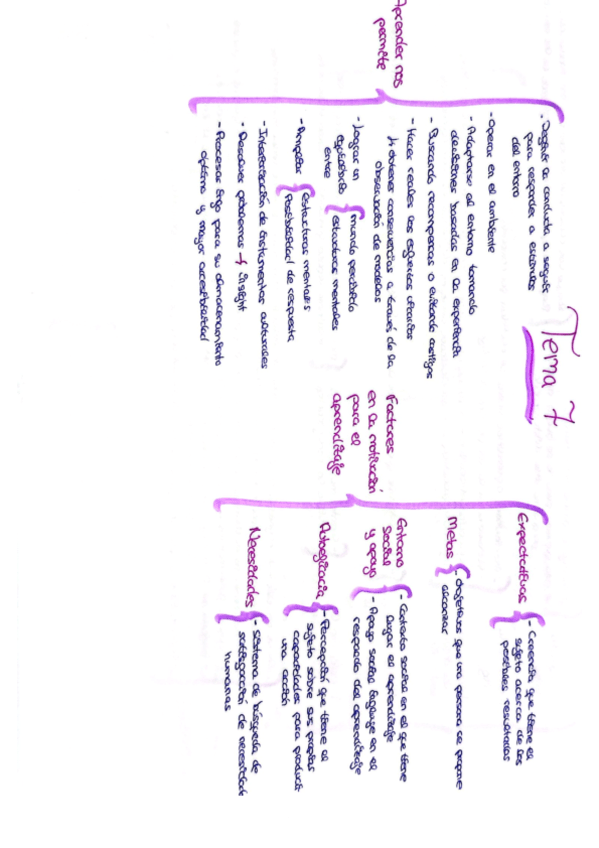 Tema 7
Aprender nos
permite
- Dirigir la conducta a seguir
para responder a estímulos
del entorno
- Operar en el ambiente
- Adaptarse al entorno tomando
decisiones basadas en la experiencia
- Buscando recompensas o evitando castigos
- Hacer reales los
y obtener consecuencias a través de la
observación de modelos
- Lograr un
equilibrio
entre
mundo percibido
estructuras mentales
- Ampliar
estructuras mentales
posibilidad de respuesta
- Interiorización de instrumentos culturales
- Resolver problemas → insight
- Procesar algo para su almacenamiento
óptimo y mayor accesibilidad
Factores
en la motivación
para el
aprendizaje
Expectativas
- Creencia que tiene el
sujeto acerca de los
posibles resultados
Metas
- Objetivos que una persona se propone
alcanzar
Entorno
social
y apoyo
- Contexto social en el que tiene
lugar el aprendizaje
- Apoyo social influye en el
respaldo del aprendizaje
Autoeficacia
- Percepción que tiene el
sujeto sobre sus propias
capacidades para producir
una acción
Necesidades
- Sistema de búsqueda de
satisfacción de necesidades
humanas